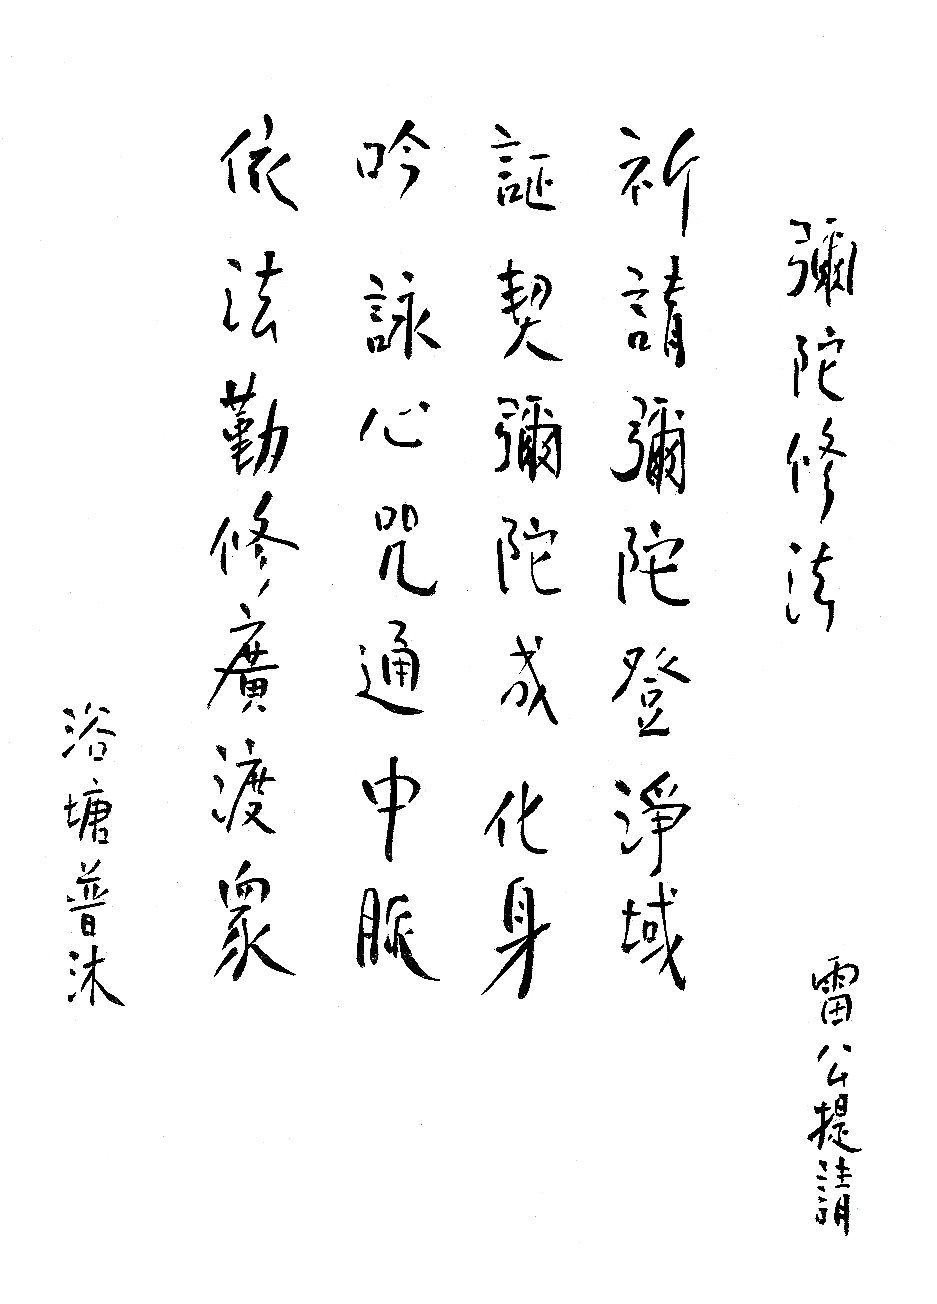 彌陀修法
雷公提請
祈請彌陀登淨域
誣契彌陀成化身
吟詠心咒通中脈
依法勤修廣渡眾
浴塘普沐